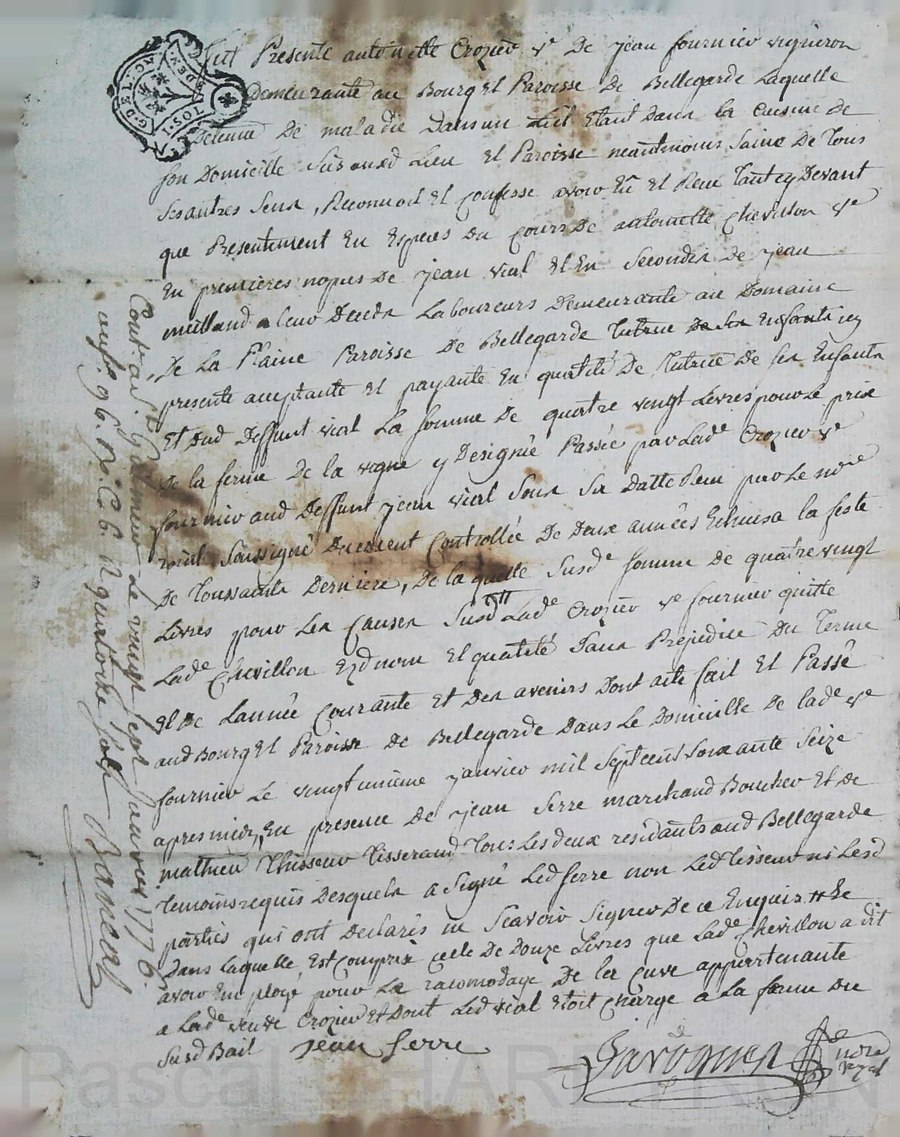 fut Presente antoinette Crozier v.e De jean fournier vigneron
Demeurante au Bourg Et Paroisse De Bellegarde Laquelle
Detenue De maladie Dans un Lit Etant Dans la Cuisine De
son Domicille Sis aud Lieu Et Paroisse neantmoins Saine De Tous
Ses autres Sens, Reconnoit Et Confesse avoir Eu Et Receu Tant cy Devant
que Presentement En Especes Du Cours De antoinette Chevillon v.e
En premieres nopces De jean vial Et En Secondes De jean
meilland a leur Deceds Laboureurs Demeurante au Domaine
De La Plaine Paroisse De Bellegarde Tutrice De Ses Enfants icy
presente acceptante Et payante En qualité De Tutrice De Ses Enfants
Et Dud Deffunt vial La somme De quatre vingt Livres pour Le prix
De la ferme De la vigne y Designée Passée par Lad.e Crozier v.e
fournier aud Deffunt jean vial Sous Sa Datte Receu par Le no.re
royal Soussigné Duement Controllée De Deux années Echues a la feste
De Toussaints Derniere, De la quelle Susd.e somme De quatre vingt
Livres pour Les Causes Susd.es Lad.e Crozier v.e fournier quitte
Lad.e Chevillon Ezd nom Et qualité Sans Prejudice Du Terme
Et De L'année Courante Et Des avenirs Dont acte fait Et Passé
aud Bourg Et Paroisse De Bellegarde Dans Le Domicille De lad.e v.e
fournier Le vingt unieme janvier mil Sept cent Soixante Seize
apres midy, En presence De jean Serre marchand Boucher Et De
mathieu Tisserand Tous Les deux residants aud Bellegarde
Temoins requis Desquels a Signé Led Serre non Led ni Lesd
parties qui ont Declarés ne Scavoir Signer De ce Enquis # #
Dans Laquelle Est Comprix celle De Douze Livres que Lad.e Chevillon a dit
avoir Employé pour Le racomodage De la Cuve appartenante
a Lad.e veuve Crozier Et Dont Led vial Etoit Chargé a La forme Du
Susd Bail jean Serre
no.re royal
Controllé a le vingt sept janvier 1776.
quatorze sols
GEN. DE
Pascal